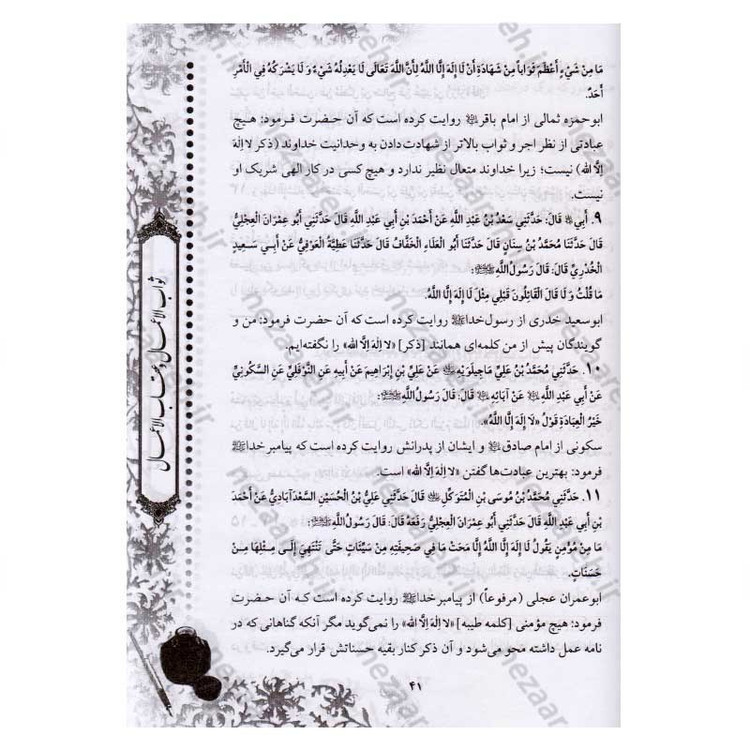 مَا مِنْ شَيْءٍ أَعْظَمَ ثَوَاباً مِنْ شَهَادَةِ أَنْ لَا إِلَهَ إِلَّا اللَّهُ لِأَنَّ اللَّهَ تَعَالَى لَا يَعْدِلُهُ شَيْءٌ وَ لَا يَشْرَكُهُ فِي الْأَمْرِ
أَحَدٌ.
ابوحمزه ثمالی از امام باقر روایت کرده است که آن حضرت فرمود: هیچ
عبادتی از نظر اجر و ثواب بالاتر از شهادت‌دادن به وحدانیت خداوند (ذکر لا اِلهَ
اِلَّا الله) نیست؛ زیرا خداوند متعال نظیر ندارد و هیچ کسی در کار الهی شریک او
نیست.
۹. أَبِي قَالَ: حَدَّثَنِي سَعْدُ بْنُ عَبْدِ اللَّهِ عَنْ أَحْمَدَ بْنِ أَبِي عَبْدِ اللَّهِ قَالَ حَدَّثَنِي أَبُو عِمْرَانَ الْعِجْلِيُّ
قَالَ حَدَّثَنَا مُحَمَّدُ بْنُ سِنَانٍ قَالَ حَدَّثَنَا أَبُو الْعَلَاءِ الْخَفَّافُ قَالَ حَدَّثَنَا عَطِيَّةُ الْعَوْفِيُّ عَنْ أَبِي سَعِيدٍ
الْخُدْرِيِّ قَالَ: قَالَ رَسُولُ اللَّهِ ﷺ:
مَا قُلْتُ وَ لَا قَالَ الْقَائِلُونَ قَبْلِي مِثْلَ لَا إِلَهَ إِلَّا اللَّهُ.
ابوسعید خدری از رسول‌خدا ﷺ روایت کرده است که آن حضرت فرمود: من و
گویندگان پیش از من کلمه‌ای همانند [ذکر] «لا اِلهَ اِلَّا الله» را نگفته‌ایم.
۱۰. حَدَّثَنِي مُحَمَّدُ بْنُ عَلِيٍّ مَاجِيلَوَيْهِ عَنْ عَلِيِّ بْنِ إِبْرَاهِيمَ عَنْ أَبِيهِ عَنِ النَّوْفَلِيِّ عَنِ السَّكُونِيِّ
عَنْ أَبِي عَبْدِ اللَّهِ عَنْ آبَائِهِ قَالَ: قَالَ رَسُولُ اللَّهِ ﷺ:
خَيْرُ الْعِبَادَةِ قَوْلُ «لَا إِلَهَ إِلَّا اللَّهُ».
سکونی از امام صادق و ایشان از پدرانش روایت کرده است که پیامبر خدا ﷺ
فرمود: بهترین عبادت‌ها گفتن «لا اِلهَ اِلَّا الله» است.
۱۱. حَدَّثَنِي مُحَمَّدُ بْنُ مُوسَى بْنِ الْمُتَوَكِّلِ قَالَ حَدَّثَنِي عَلِيُّ بْنُ الْحُسَيْنِ السَّعْدَآبَادِيُّ عَنْ أَحْمَدَ
بْنِ أَبِي عَبْدِ اللَّهِ قَالَ حَدَّثَنِي أَبُو عِمْرَانَ الْعِجْلِيُّ رَفَعَهُ قَالَ: قَالَ رَسُولُ اللَّهِ ﷺ:
مَا مِنْ مُؤْمِنٍ يَقُولُ لَا إِلَهَ إِلَّا اللَّهُ إِلَّا مَحَتْ مَا فِي صَحِيفَتِهِ مِنْ سَيِّئَاتٍ حَتَّى تَنْتَهِيَ إِلَى مِثْلِهَا مِنْ
حَسَنَاتٍ.
ابوعمران عجلی (مرفوعاً) از پیامبر خدا ﷺ روایت کرده است که آن حضرت
فرمود: هیچ مؤمنی [کلمه طیبه] «لا اِلهَ اِلَّا الله» را نمی‌گوید مگر آنکه گناهانی که در
نامه عمل داشته محو می‌شود و آن ذکر کنار بقیه حسناتش قرار می‌گیرد.
ثواب الاعمال و عقاب الاعمال
۴۱
nezaareh.ir